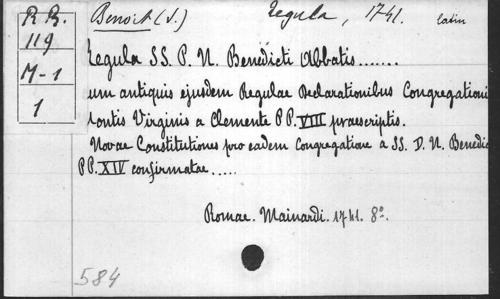 R.R. Benoit (S.) Regula, 1741. latin
119
M-1
1
Regula SS. P. N. Benedicti Abbatis.......
um antiquis ejusdem Regulae Declarationibus Congregationi
ontis Virginis a Clemente PP. VIII praescriptis.
Novae Constitutiones pro eadem Congregatione a SS. D. N. Benedic
PP. XIV confirmatae.....
Romae. Mainardi. 1741. 8º.
584